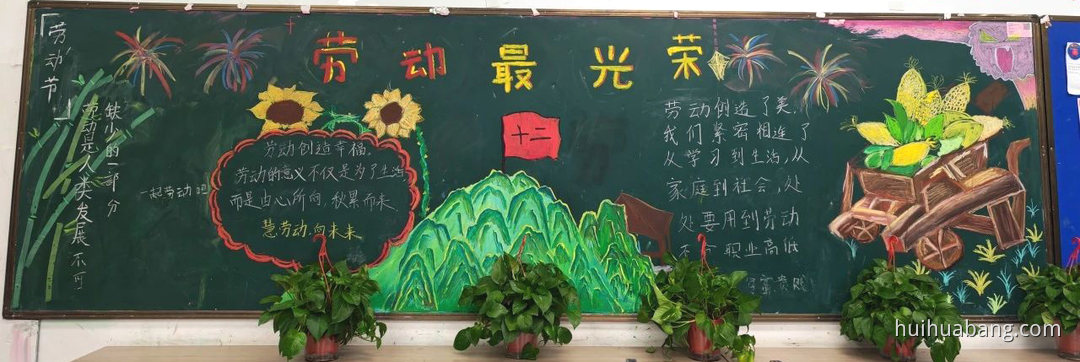 「劳动节」
劳动最光荣
劳动是人类发展不可
缺少的一部分
一起劳动吧
劳动创造幸福，
劳动的意义不仅是为了生活
而是由心所向，秋累而来
慧劳动，向未来
十二
劳动创造了美，
我们紧密相连了
从学习到生活，从
家庭到社会，处
处要用到劳动
不 职业高低
富贵贱
huihuabang.com